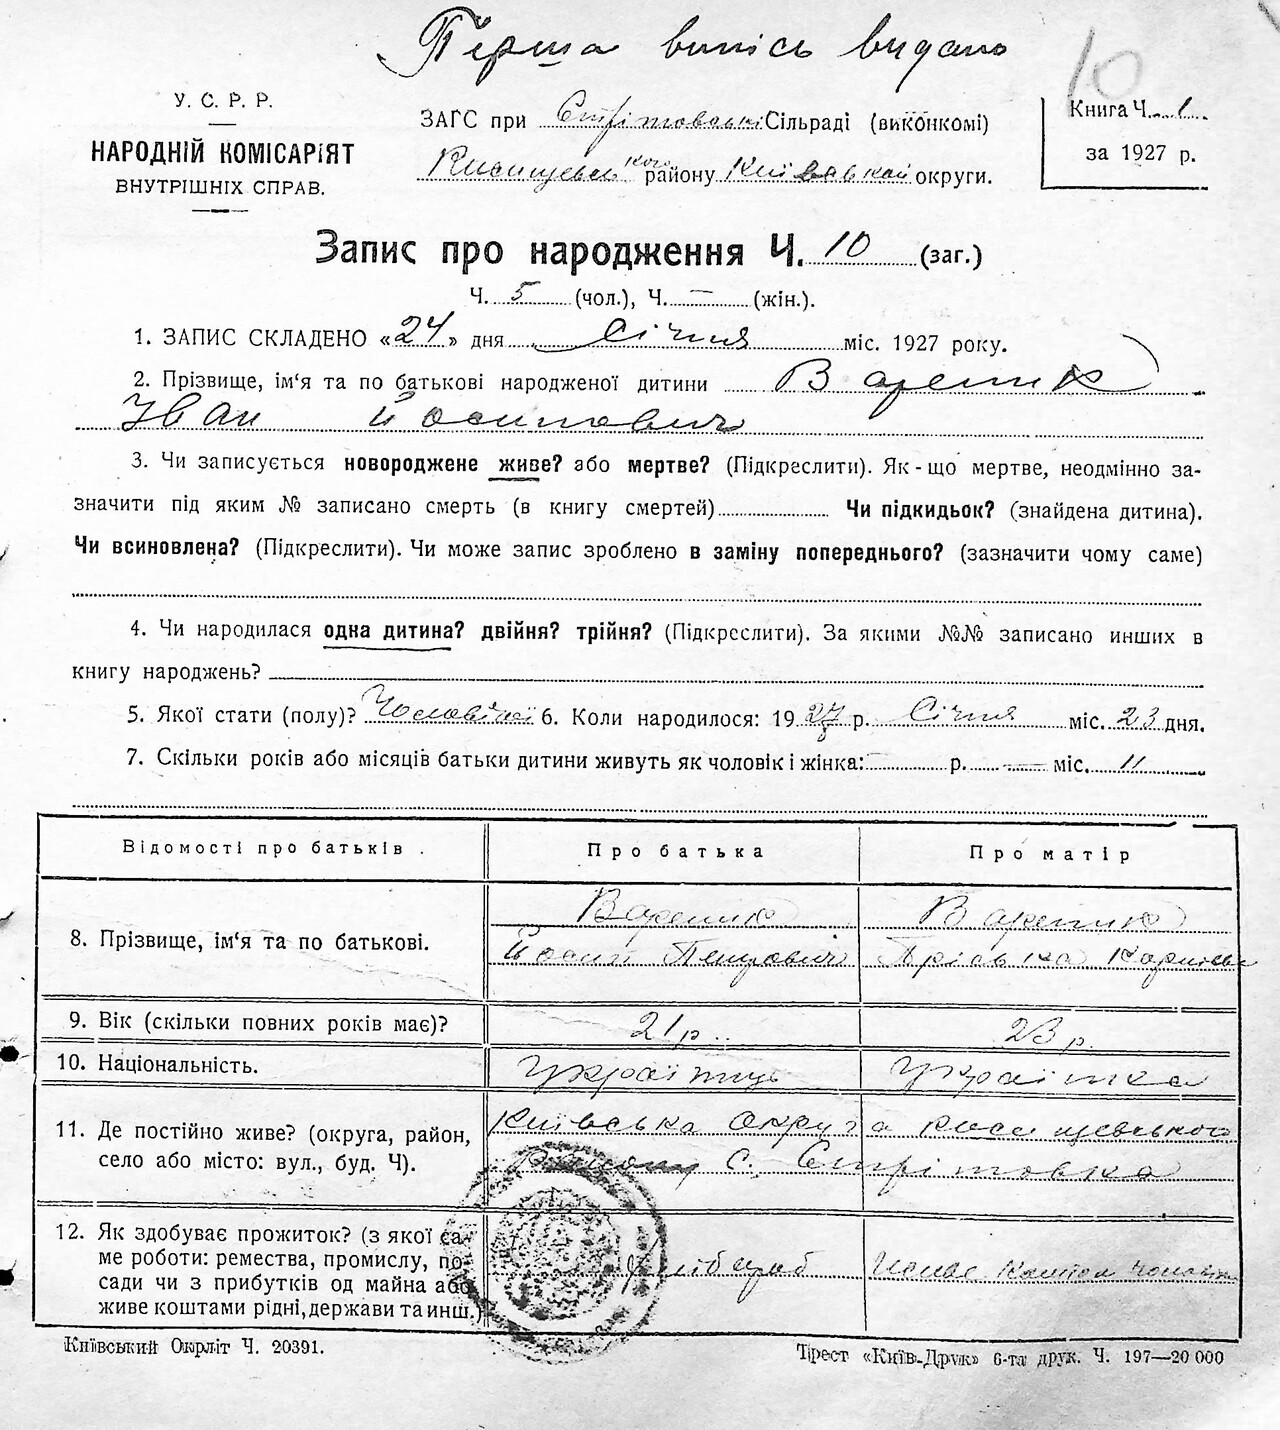 Перша випісь видано
10
У. С. Р. Р.
НАРОДНІЙ КОМІСАРІЯТ
ВНУТРІШНІХ СПРАВ.
ЗАГС при Стрітовські Сільраді (виконкомі)
району Київській округи.
Книга Ч. 1
за 1927 р.
Запис про народження Ч. 10 (заг.)
Ч. 5 (чол.), Ч. — (жін.).
1. ЗАПИС СКЛАДЕНО «24» дня Січня міс. 1927 року.
2. Прізвище, ім‘я та по батькові народженої дитини Вареник
Іван Йосипович
3. Чи записується новороджене живе? або мертве? (Підкреслити). Як-що мертве, неодмінно за-
значити під яким № записано смерть (в книгу смертей) Чи підкидьок? (знайдена дитина).
Чи всиновлена? (Підкреслити). Чи може запис зроблено в заміну попереднього? (зазначити чому саме)
4. Чи народилася одна дитина? двійня? трійня? (Підкреслити). За якими №№ записано инших в
книгу народжень?
5. Якої стати (полу)? Чоловічої 6. Коли народилося: 1927 р. Січня міс. 23 дня.
7. Скільки років або місяців батьки дитини живуть як чоловік і жінка: — р. — міс. 11
Відомості про батьків. Про батька Про матір
Вареник Вареник
8. Прізвище, ім‘я та по батькові.
Йосип Петрович Пріська
9. Вік (скільки повних років має)? 21 р. 23 р.
10. Національність. Українець Українка
11. Де постійно живе? (округа, район, Київська Округа
село або місто: вул., буд. Ч). Району с. Стрітовка
12. Як здобуває прожиток? (з якої са-
ме роботи: ремества, промислу, по-
сади чи з прибутків од майна або Хлібороб
живе коштами рідні, держави та инш.)
Київський Окрліт Ч. 20391.
Трест «Київ-Друк» 6-та друк. Ч. 197—20 000